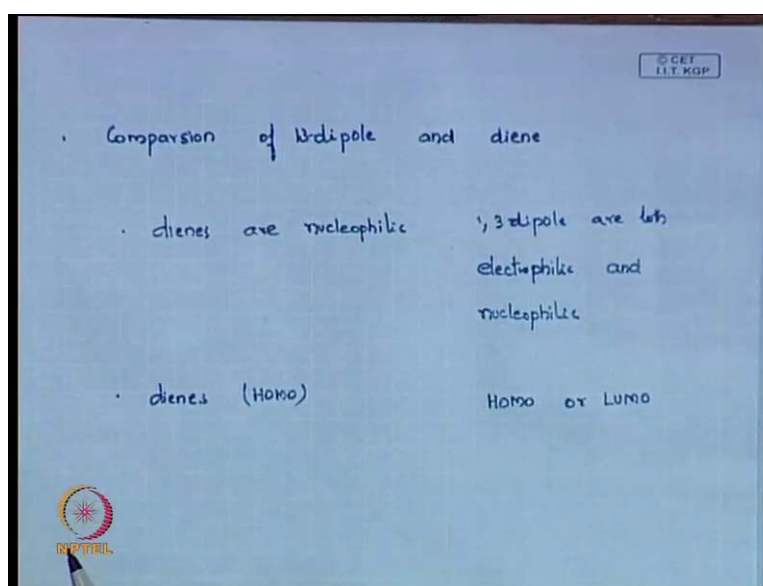 © CET
I.I.T. KGP
. Comparsion of 1,3-dipole and diene
. dienes are nucleophilic 1,3 dipole are both
electrophilic and
nucleophilic
. dienes (HOMO) HOMO or LUMO
NPTEL